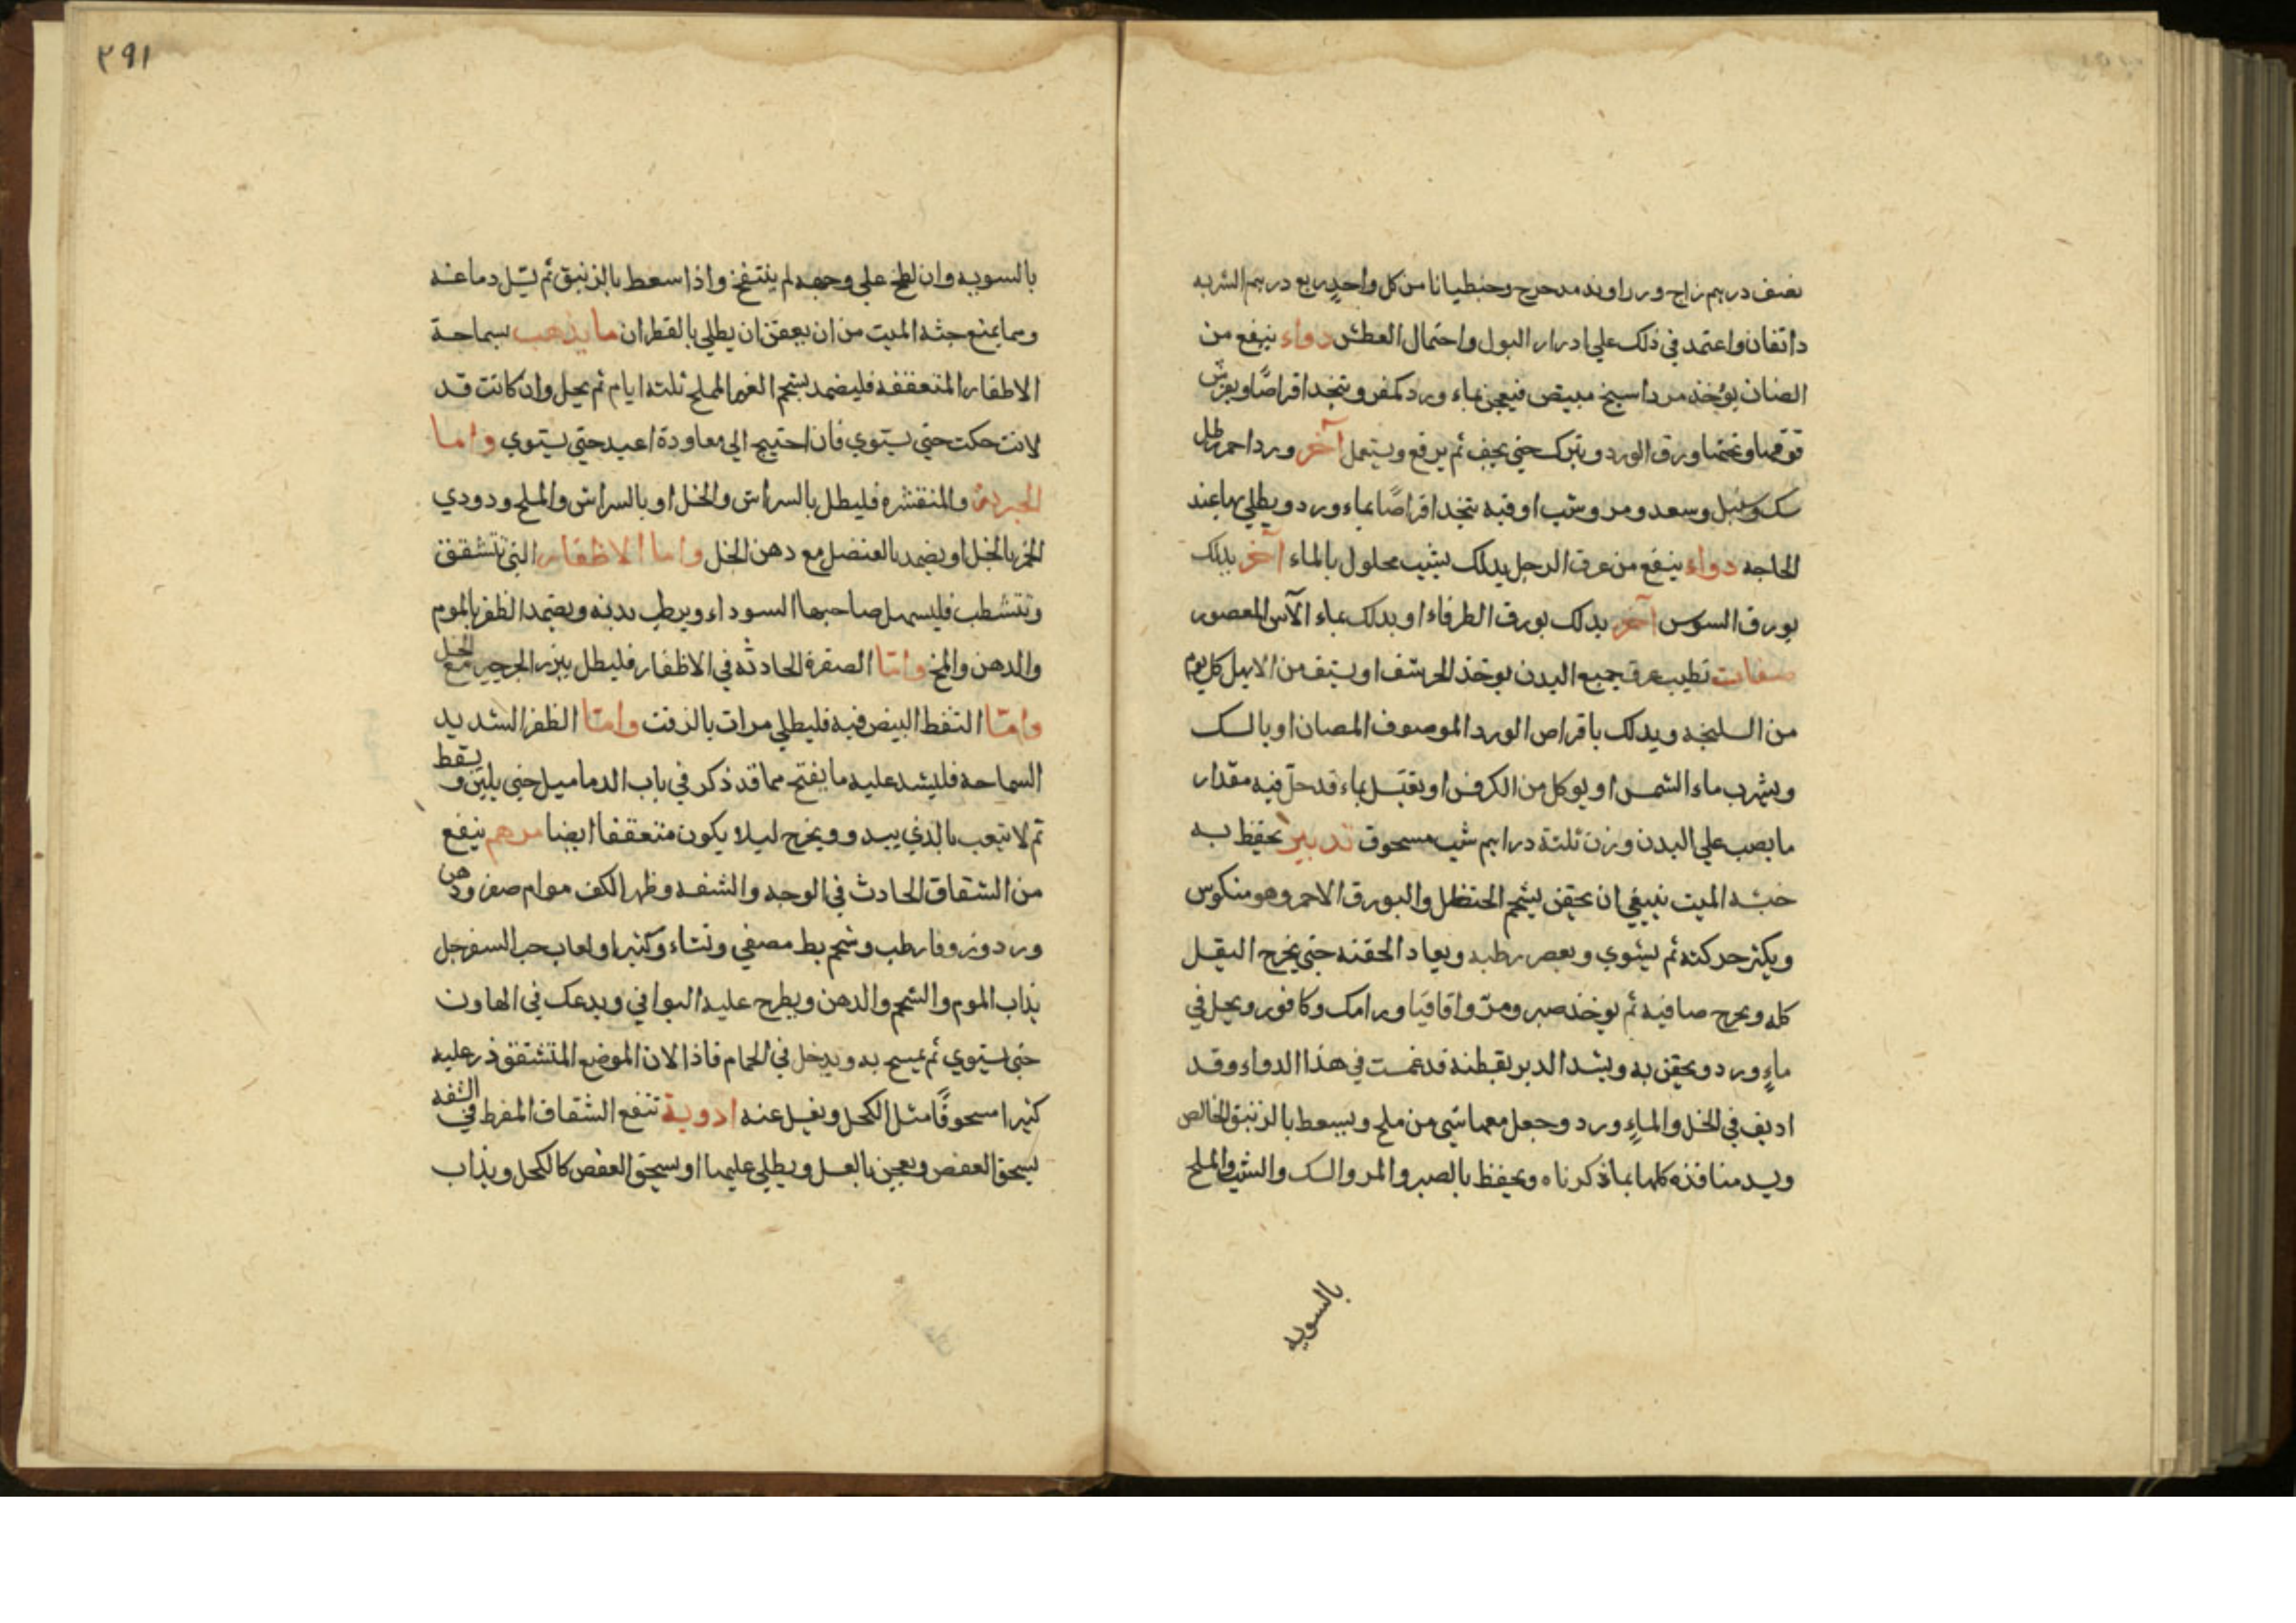 نصف درهم زاج وزراوند مدحرج وجنطيانا من كل واحدٍ ربع درهم الشربه
دانقان واعتمد في ذلك علي ادرار البول واحتمال العطش دواء ينفع من
الصنان يؤخذ مرداسنج مبيض فيعجن بماء ورد كمفر ويتخذ اقراصًا ويفرش
فوقها وتحتها ورق الورد ويترك حتي يجف ثم يرفع ويستعمل آخر ورد احمر رطل
سك وسنبل وسعد ومر وشب اوقيه يتخذ اقراصًا بماء ورد ويطلي بها عند
الحاجه دواء ينفع من عرق الرجل يدلك بشب محلول بالماء آخر يدلك
بورق السوس آخر يدلك بورق الطرفاء او يدلك بماء الآس المعصور
صفات تطيب عرق جميع البدن يوخذ الحرشف او يستف من الابهل كل يوم
من السليخه ويدلك باقراص الورد الموصوف المصان او بالسك
ويشرب ماء الشمس او يوكل من الكرفس او يغتسل بماء قد حل فيه مقدار
ما يصب علي البدن وزن ثلثة دراهم شب مسحوق تدبير يحفظ به
جثه الميت ينبغي ان يحقن بشحم الحنظل والبورق الاحمر وهو منكوس
ويكثر حركته ثم يستوي ويعصر بطنه ويعاد الحقنه حتي يخرج الثفل
كله ويخرج صافيه ثم يوخذ صبر ومرّ واقاقيا ورامك وكافور ويحل في
ماءٍ ورد ويحقن به ويشد الدبر بقطنة قد غمست في هذا الدواء وقد
اديف في الخل والماءٍ ورد وجعل معها شي من ملح ويسعط بالزنبق الخالص
ويسد منافذه كلها بما ذكرناه ويحفظ بالصبر والمر والسك والشب والملح
بالسويه
٢٩١
بالسويه وان لطخ علي وجهه لم ينتفخ واذا سعط بالزنبق ثم يسل دماغه
ومما يمنع جثه الميت من ان يعفن ان يطلي بالقطران ما يذهب سماجة
الاظفار المتعقفه فليضمد بشحم الغنم المملح ثلثه ايام ثم يحل وان كانت قد
لانت حكت حتي يستوي فان احتيج الي معاودة اعيد حتي يستوي واما
والمنقشره فليطل بالسراش والخل او بالسراش والملح ودودي
الخمر بالخل او يضمد بالعنصل مع دهن الخل واما الاظفار التي تتشقق
وتتشطب فليسهل صاحبها السوداء ويرطب بدنه ويضمد الظفر بالموم
والدهن والمخ وامّا الصفرة الحادثه في الاظفار فليطل ببزر الجرجير مع الخل
وامّا النقط البيض فيه فليطلي مرات بالزفت وامّا الظفر الشديد
السماحه فليشد عليه ما يفتح مما قد ذكر في باب الدماميل حتي يلين ويسقط
ثم لا تتعب بالذي يبدو ويخرج ليلا يكون متعقفا ايضا مرهم ينفع
من الشقاق الحادث في الوجه والشفه وظهر الكف موام صفر ودهن
ورد وزوفا رطب وشحم بط مصفي ونشاء وكثيرا ولعاب حب السفرجل
يذاب الموم والشحم والدهن ويطرح عليه البواقي ويدعك في الهاون
حتي يستوي ثم يمسح به ويدخل في الحمام فاذا الان الموضع المتشقق ذر عليه
كثيرا مسحوقًا مثل الكحل ويغسل عنه ادوية تنفع الشقاق المفرط في الشفه
يسحق العفص ويعجن بالعسل ويطلي عليها او يسحق العفص كالكحل ويذاب